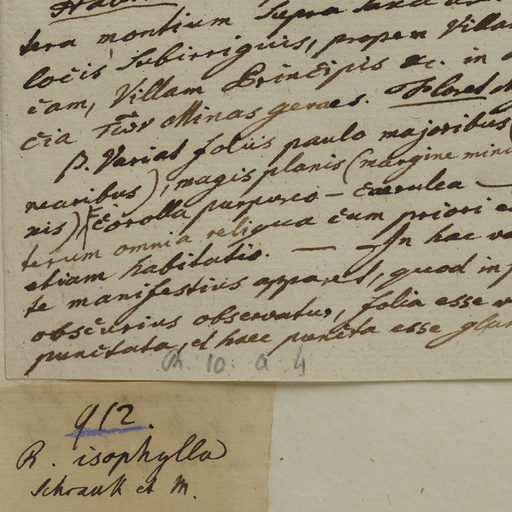 tera montium supra saxa
locis subirriguis, propen Villa
cam, Villam Principis &c. in
cia Minas geraes. Floret
β. Variat foliis paulo majoribus
nearibus), magis planis (margine mino
nis) Corolla purpureo-caerulea —
terum omnia reliqua cum priori
etiam habitatio. — — In hac va
te manifestius apparet, quod in
obscurius observatur, folia esse
punctata, et haec puncta esse glan
R. 10. a. 4
912.
R. isophylla
Schrank et M.